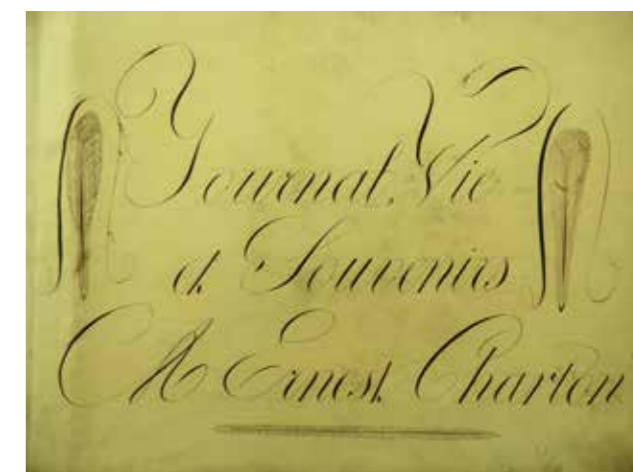 Journal, Vie
et Souvenirs
A Ernest Charton